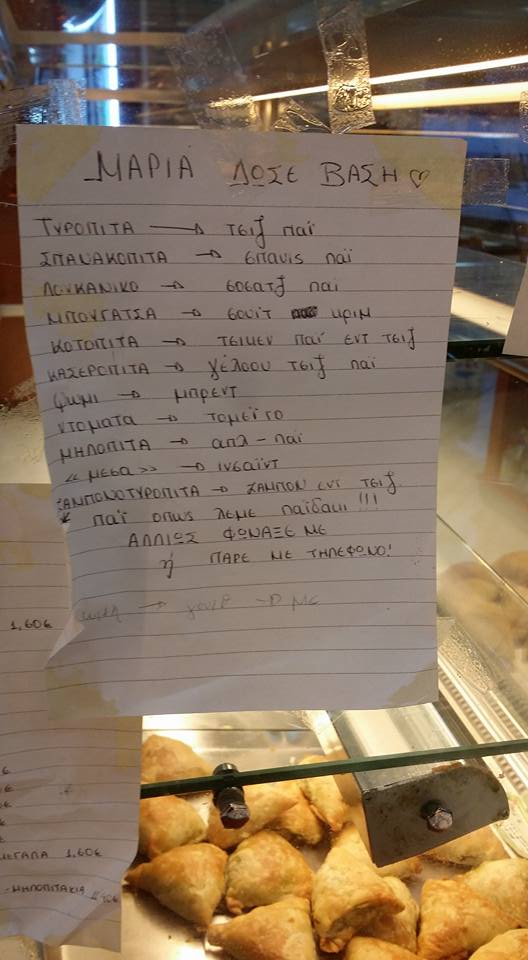 ΜΑΡΙΑ ΔΩΣΕ ΒΑΣΗ ♡
ΤΥΡΟΠΙΤΑ → τσιζ παϊ
ΣΠΑΝΑΚΟΠΙΤΑ → σπανις παϊ
ΛΟΥΚΑΝΙΚΟ → σοσατζ παϊ
ΜΠΟΥΓΑΤΣΑ → σουϊτ κριμ
ΚΟΤΟΠΙΤΑ → τσικεν παϊ εντ τσιζ
ΚΑΣΕΡΟΠΙΤΑ → γέλοου τσιζ παϊ
ψωμι → μπρεντ
ντοματα → τομεϊτο
ΜΗΛΟΠΙΤΑ → απλ - παϊ
« μεσα » → ινσαϊντ
ΖΑΜΠΟΝΟΤΥΡΟΠΙΤΑ → ΖΑΜΠΟΝ ΕΝΤ ΤΣΙΖ
* παϊ οπως λεμε παϊδακι !!!
ΑΛΛΙΩΣ ΦΩΝΑΞΕ ΜΕ
ή ΠΑΡΕ ΜΕ ΤΗΛΕΦΩΝΟ!
1,60€
ΜΕΓΑΛΑ 1,60€
- ΜΗΛΟΠΙΤΑΚΙΑ